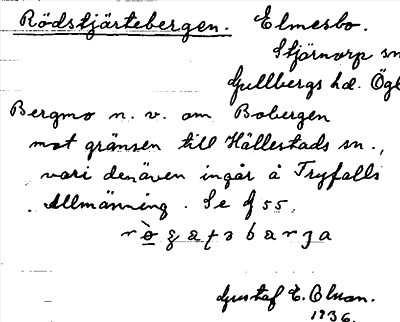 Rödstjärtebergen. Elmesbo.
Stjärnorp sn
Gullbergs hd. Ögl
Bergmo n. v. om Bobergen
mot gränsen till Hällestads sn.,
vari den även ingår å Tryfalls
Allmänning. Se f 55.
Gustaf E. Olson.
1936.